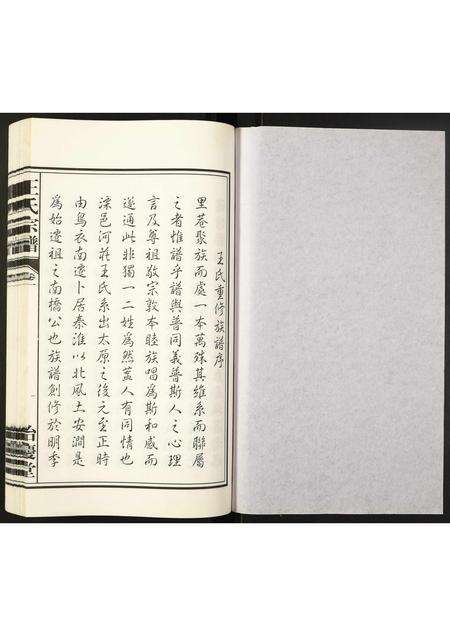 王氏重修族譜序
里巷聚族而處一本萬殊其維系而聯屬
之者惟譜乎譜與普同義普斯人之心理
言及尊祖敬宗敦本睦族唱爲斯和感而
遂通此非獨一二姓爲然蓋人有同情也
溧邑河莊王氏系出太原之後元至正時
由烏衣南遷卜居秦淮以北風土安澗是
爲始遷祖之南橋公也族譜創修於明季
王氏宗譜
卷